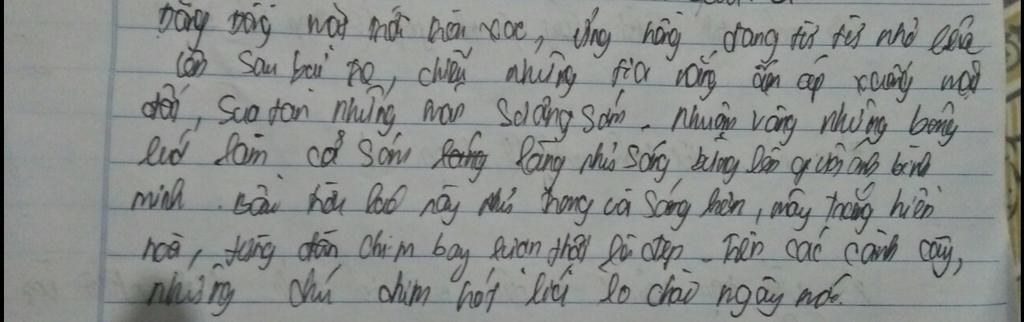 mặt trời tròn xoe, ửng hồng, đang từ từ nhô lên
sau bụi tre, chiếu những tia nắng ấm áp xuống mặt
đất, sua tan những màn sương sớm. nhuộm vàng những bông
lúa làm cả sóm làng như sáng bừng lên ánh bình
minh. bầu trời lúc này như trong và sáng hơn, mây trắng hiền
hoà, từng đàn chim bay lượn thật là đẹp. Trên các cành cây,
những chú chim hót líu lo chào ngày mới.